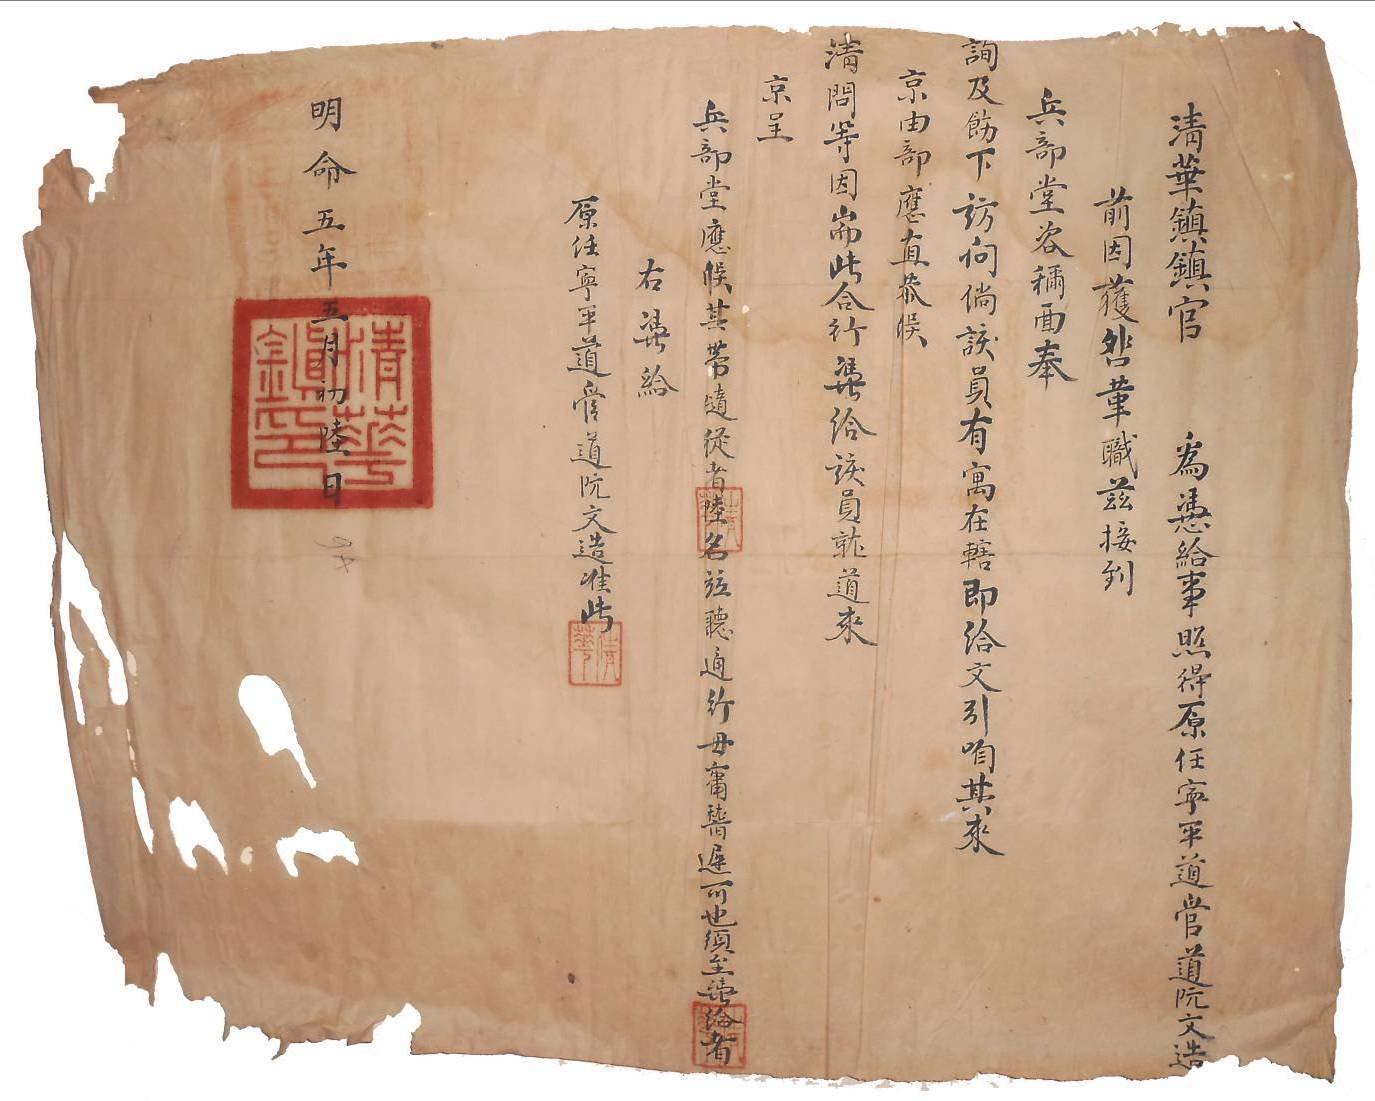 清華鎮鎮官　為憑給事照得原任寧平道管道阮文造
前因獲咎革職茲接到
兵部堂咨稱面奉
詢及飭下訪向倘該員有寓在轄即給文引咱其來
京由部應直恭候
清問等因耑此合行憑給該員就道來
京呈
兵部堂應候其帶隨從者陸名竝聽通行毋甯暫遲可也須至憑給者
右憑給
原任寧平道管道阮文造准此
明命五年五月初陸日
清華鎮印
清華